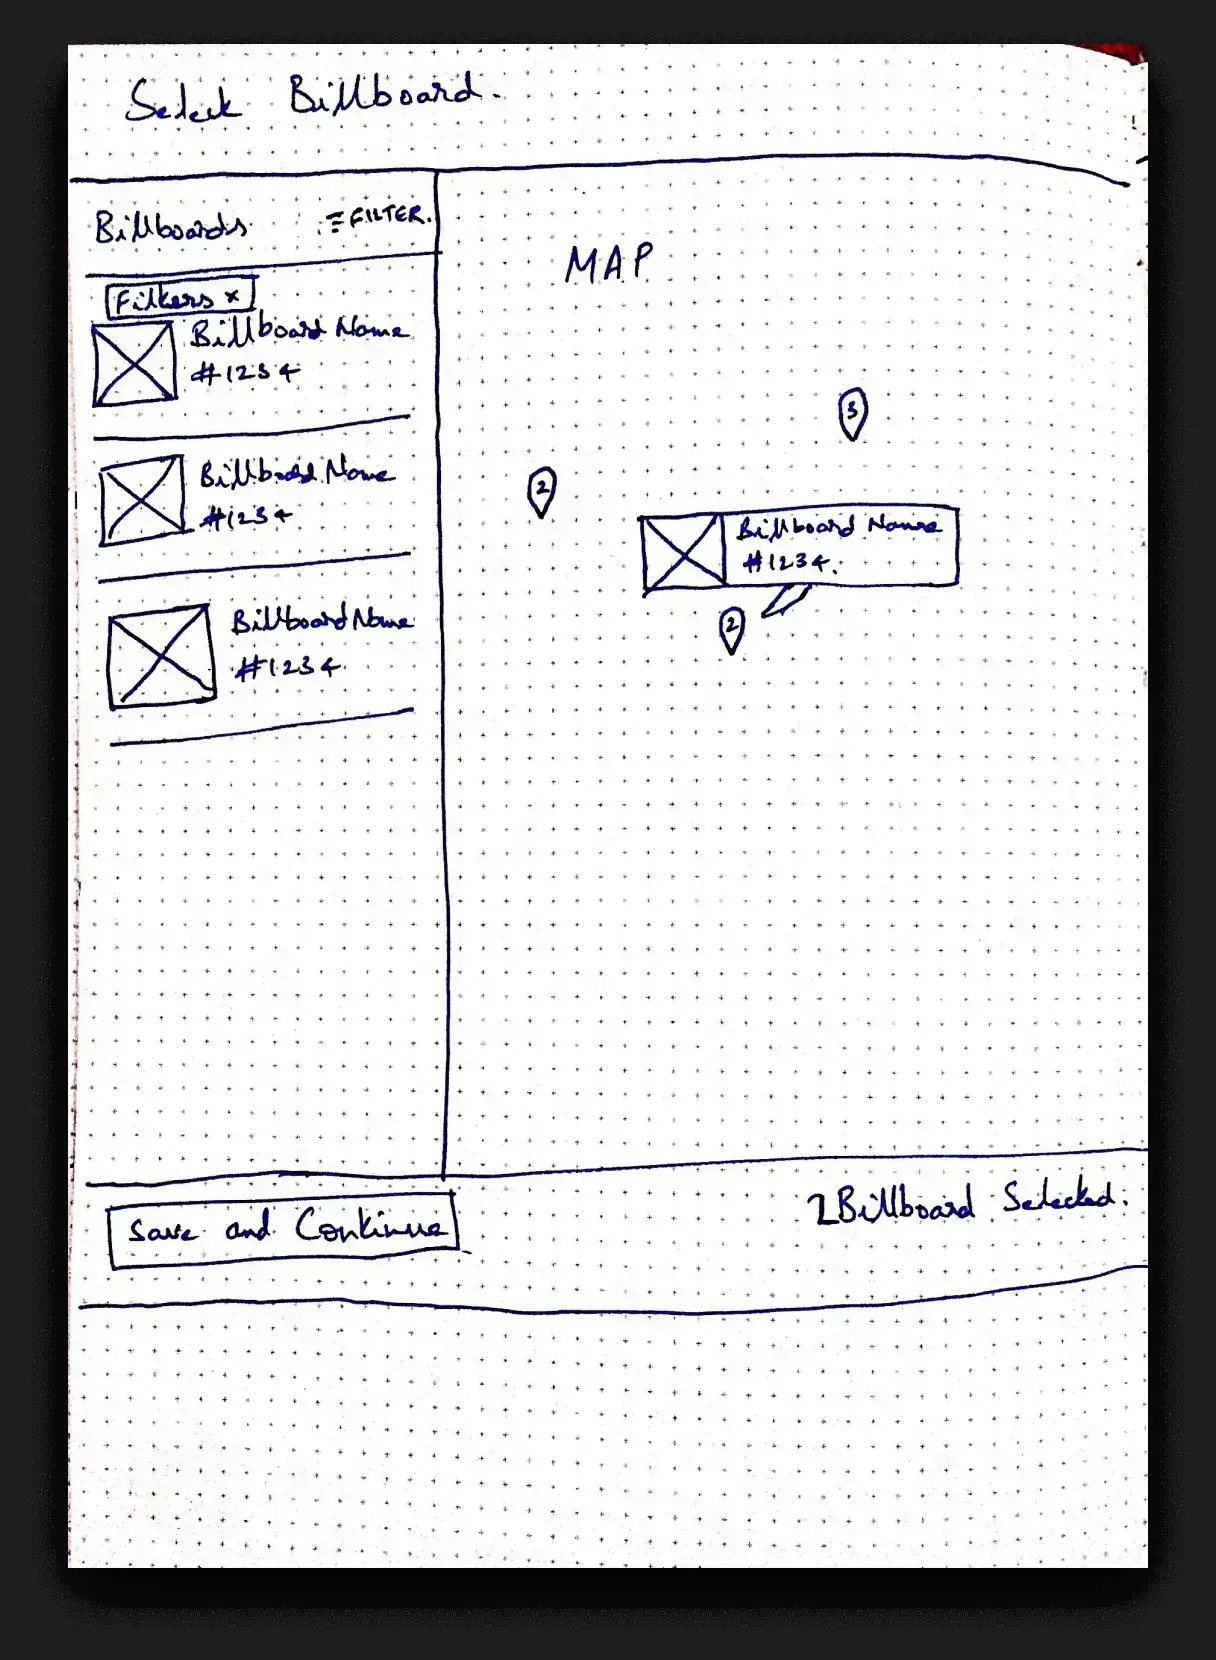 Select Billboard.
Billboards
FILTER.
Filters x
Billboard Name
#1234
Billboard Name
#1234
Billboard Name
#1234
MAP
3
2
Billboard Name
#1234.
2
Save and Continue
2 Billboard Selected.